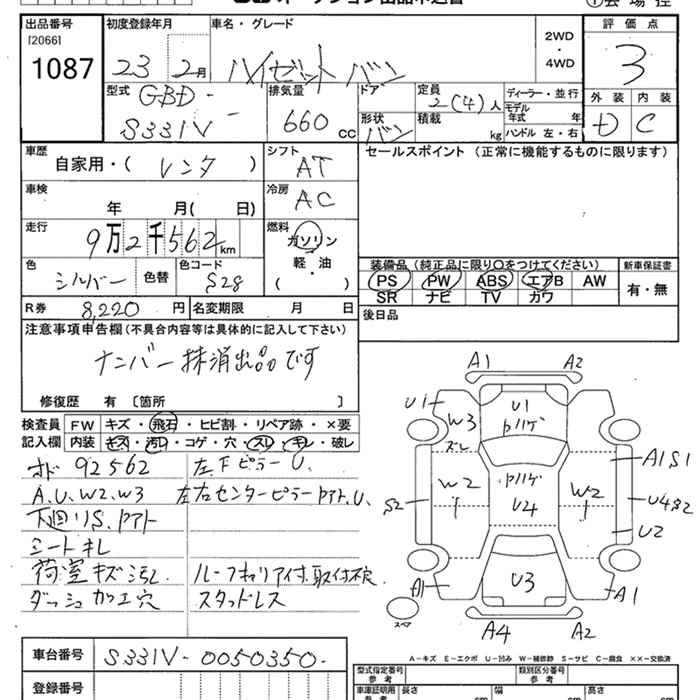 出品番号 初度登録年月 車名・グレード 評価点
[2066] 2WD
1087 23 2月 ハイゼット バン ・ 3
4WD
外装 内装
D C
型式 GBD- 排気量 ドア 定員 2(4)人 ディーラー・並行
S331V 660cc 形状 バン 積載 kg モデル年式 年
ハンドル 左・右
車歴 シフト セールスポイント (正常に機能するものに限ります)
自家用・( レンタ ) AT
車検 冷房
年 月( 日) AC
走行 燃料
9万2千562km ガソリン
軽・油
( )
色 シルバー 色替 色コード S28
装備品 (純正品に限り○をつけてください) 新車保証書
PS PW ABS エアB AW 有・無
SR ナビ TV カワ
R券 8,220円 名変期限 月 日 後日品
注意事項申告欄(不具合内容等は具体的に記入して下さい)
ナンバー抹消出品です
修復歴 有〔箇所 〕
検査員 FW キズ・飛石・ヒビ割・リペア跡・×要
記入欄 内装 キズ・汚れ・コゲ・穴・スレ・キレ・破レ
オド 92562 左下ピラーU.
A.U.W2.W3 左右センターピラーPアト.U.
下廻りS.Pアト
シートキレ
荷室キズ汚れ. ルーフキャリア付.取付不良
ダッシュ加工穴 スタッドレス
車台番号 S331V-0050350-
登録番号
A1 A2
U1 W3 ズレ U1 Pハゲ
A1S1
W2 Pハゲ W2
S2 U4 U4S2
U2
A1 U3 A1
スペア A4 A2
A-キズ E-エクボ U-凹み W-補修跡 S-サビ C-腐食 ××-交換済
型式指定番号 参考 類別区分番号 参考
車庫証明用 参考 長さ cm 幅 cm 高さ cm